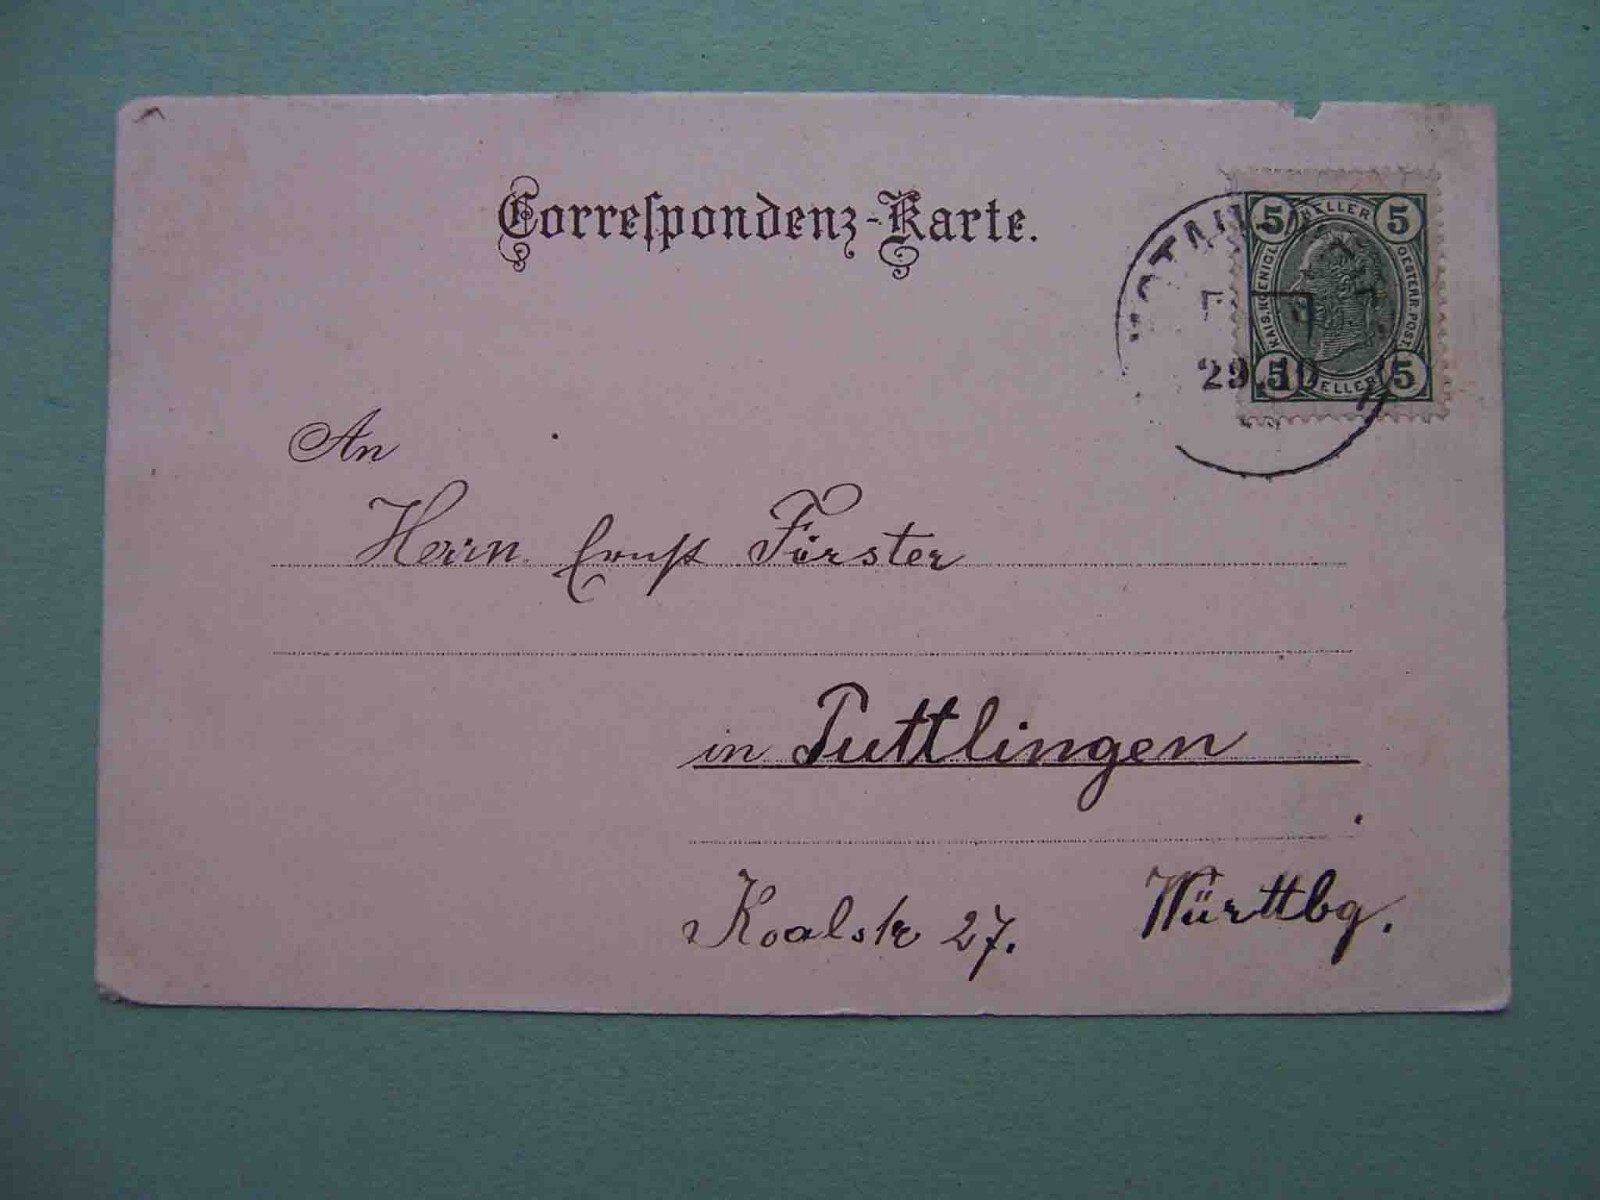 Correspondenz-Karte.
5 HELLER 5
KAIS. KOENIGL.
OESTERR. POST
5 HELLER 5
29.10
An
Herrn Ernst Förster
in Tuttlingen
Württbg.
27.